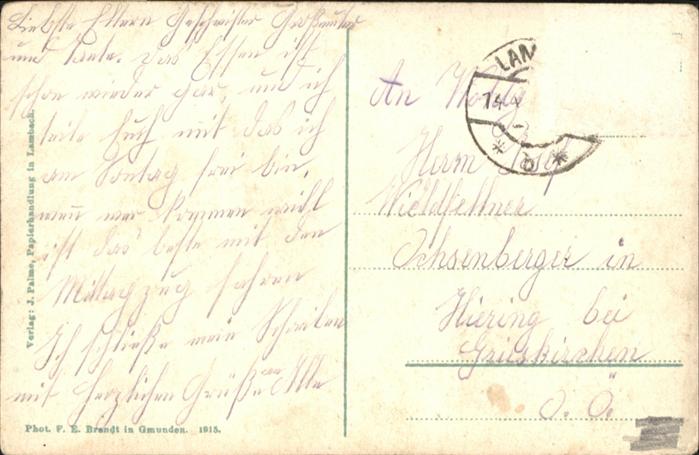 Liebste Eltern Geschwister Großmutter
und Tante. Das Essen ist
schon wieder gar, und ich
teile Euch mit das ich
am Sontag frei bin,
wenn wer kommen will
ist das beste mit den
Mittagzug fahren
Ich schließe mein Schreiben
mit herzlichen Grüße an Alle
Phot. F. E. Brandt in Gmunden. 1915.
Verlag: J. Palme, Papierhandlung in Lambach.
LAM
14
An
Herrn Josef
Wieldfellner
Ochsenberger in
Hiering bei
Grieskirchen
O. Ö.